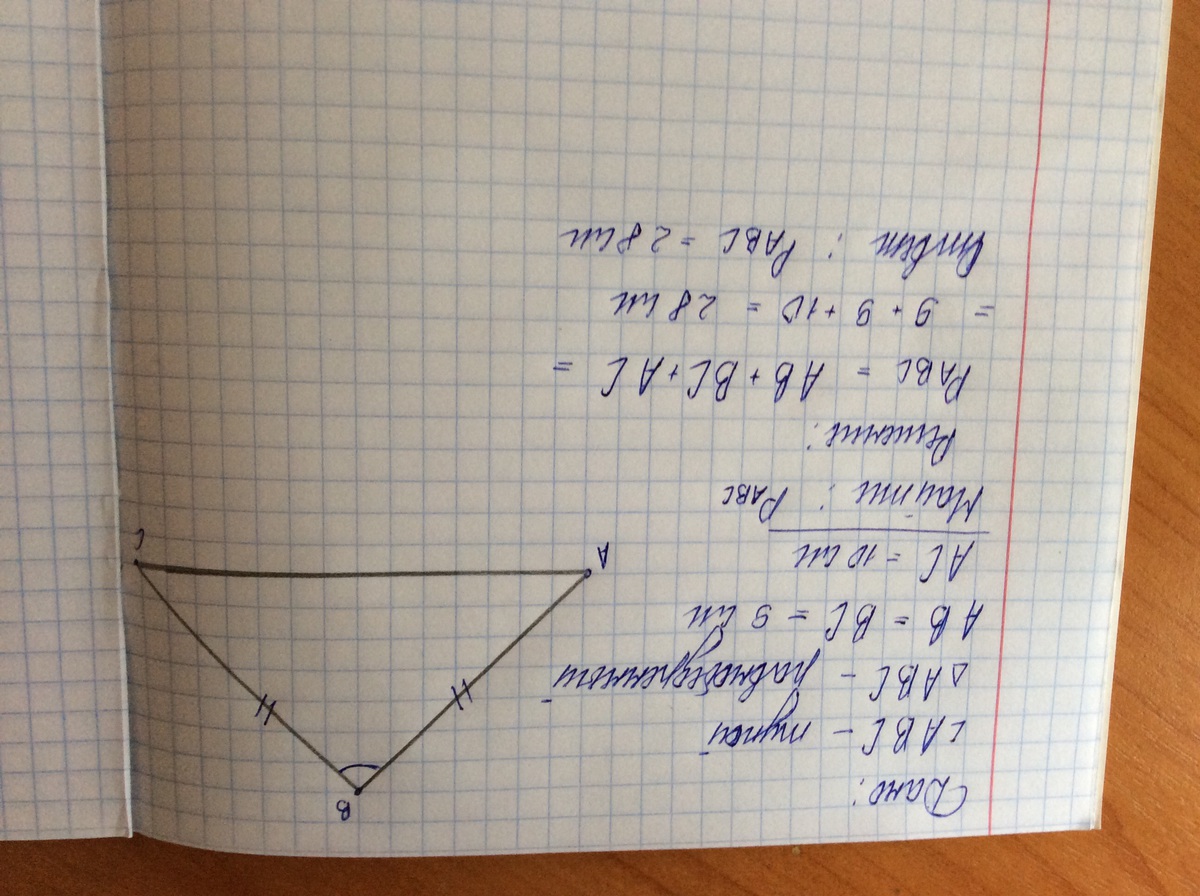 Дано:
∠ABC - тупой
△ABC - равнобедренный
AB = BC = 9 см
AC = 10 см
Найти: PABC
Решение:
PABC = AB + BC + AC =
= 9 + 9 + 10 = 28 см
Ответ: PABC = 28 см
B
A
C